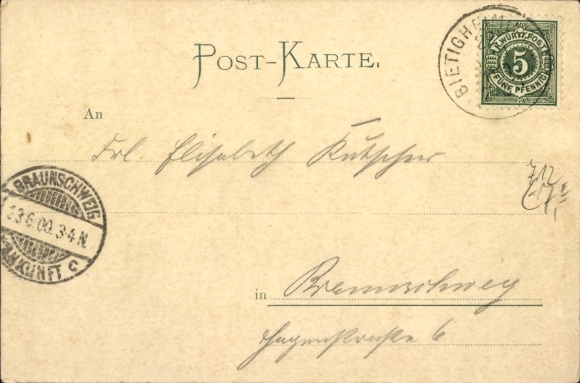 POST-KARTE.
BIETIGHEIM
K. WÜRTT. POST
5
FÜNF PFENNIG
An
Frl. Elisabeth Kutscher
BRAUNSCHWEIG
23.6.00.3-4N.
ANKUNFT
c
in Braunschweig
Hagenstraße 6